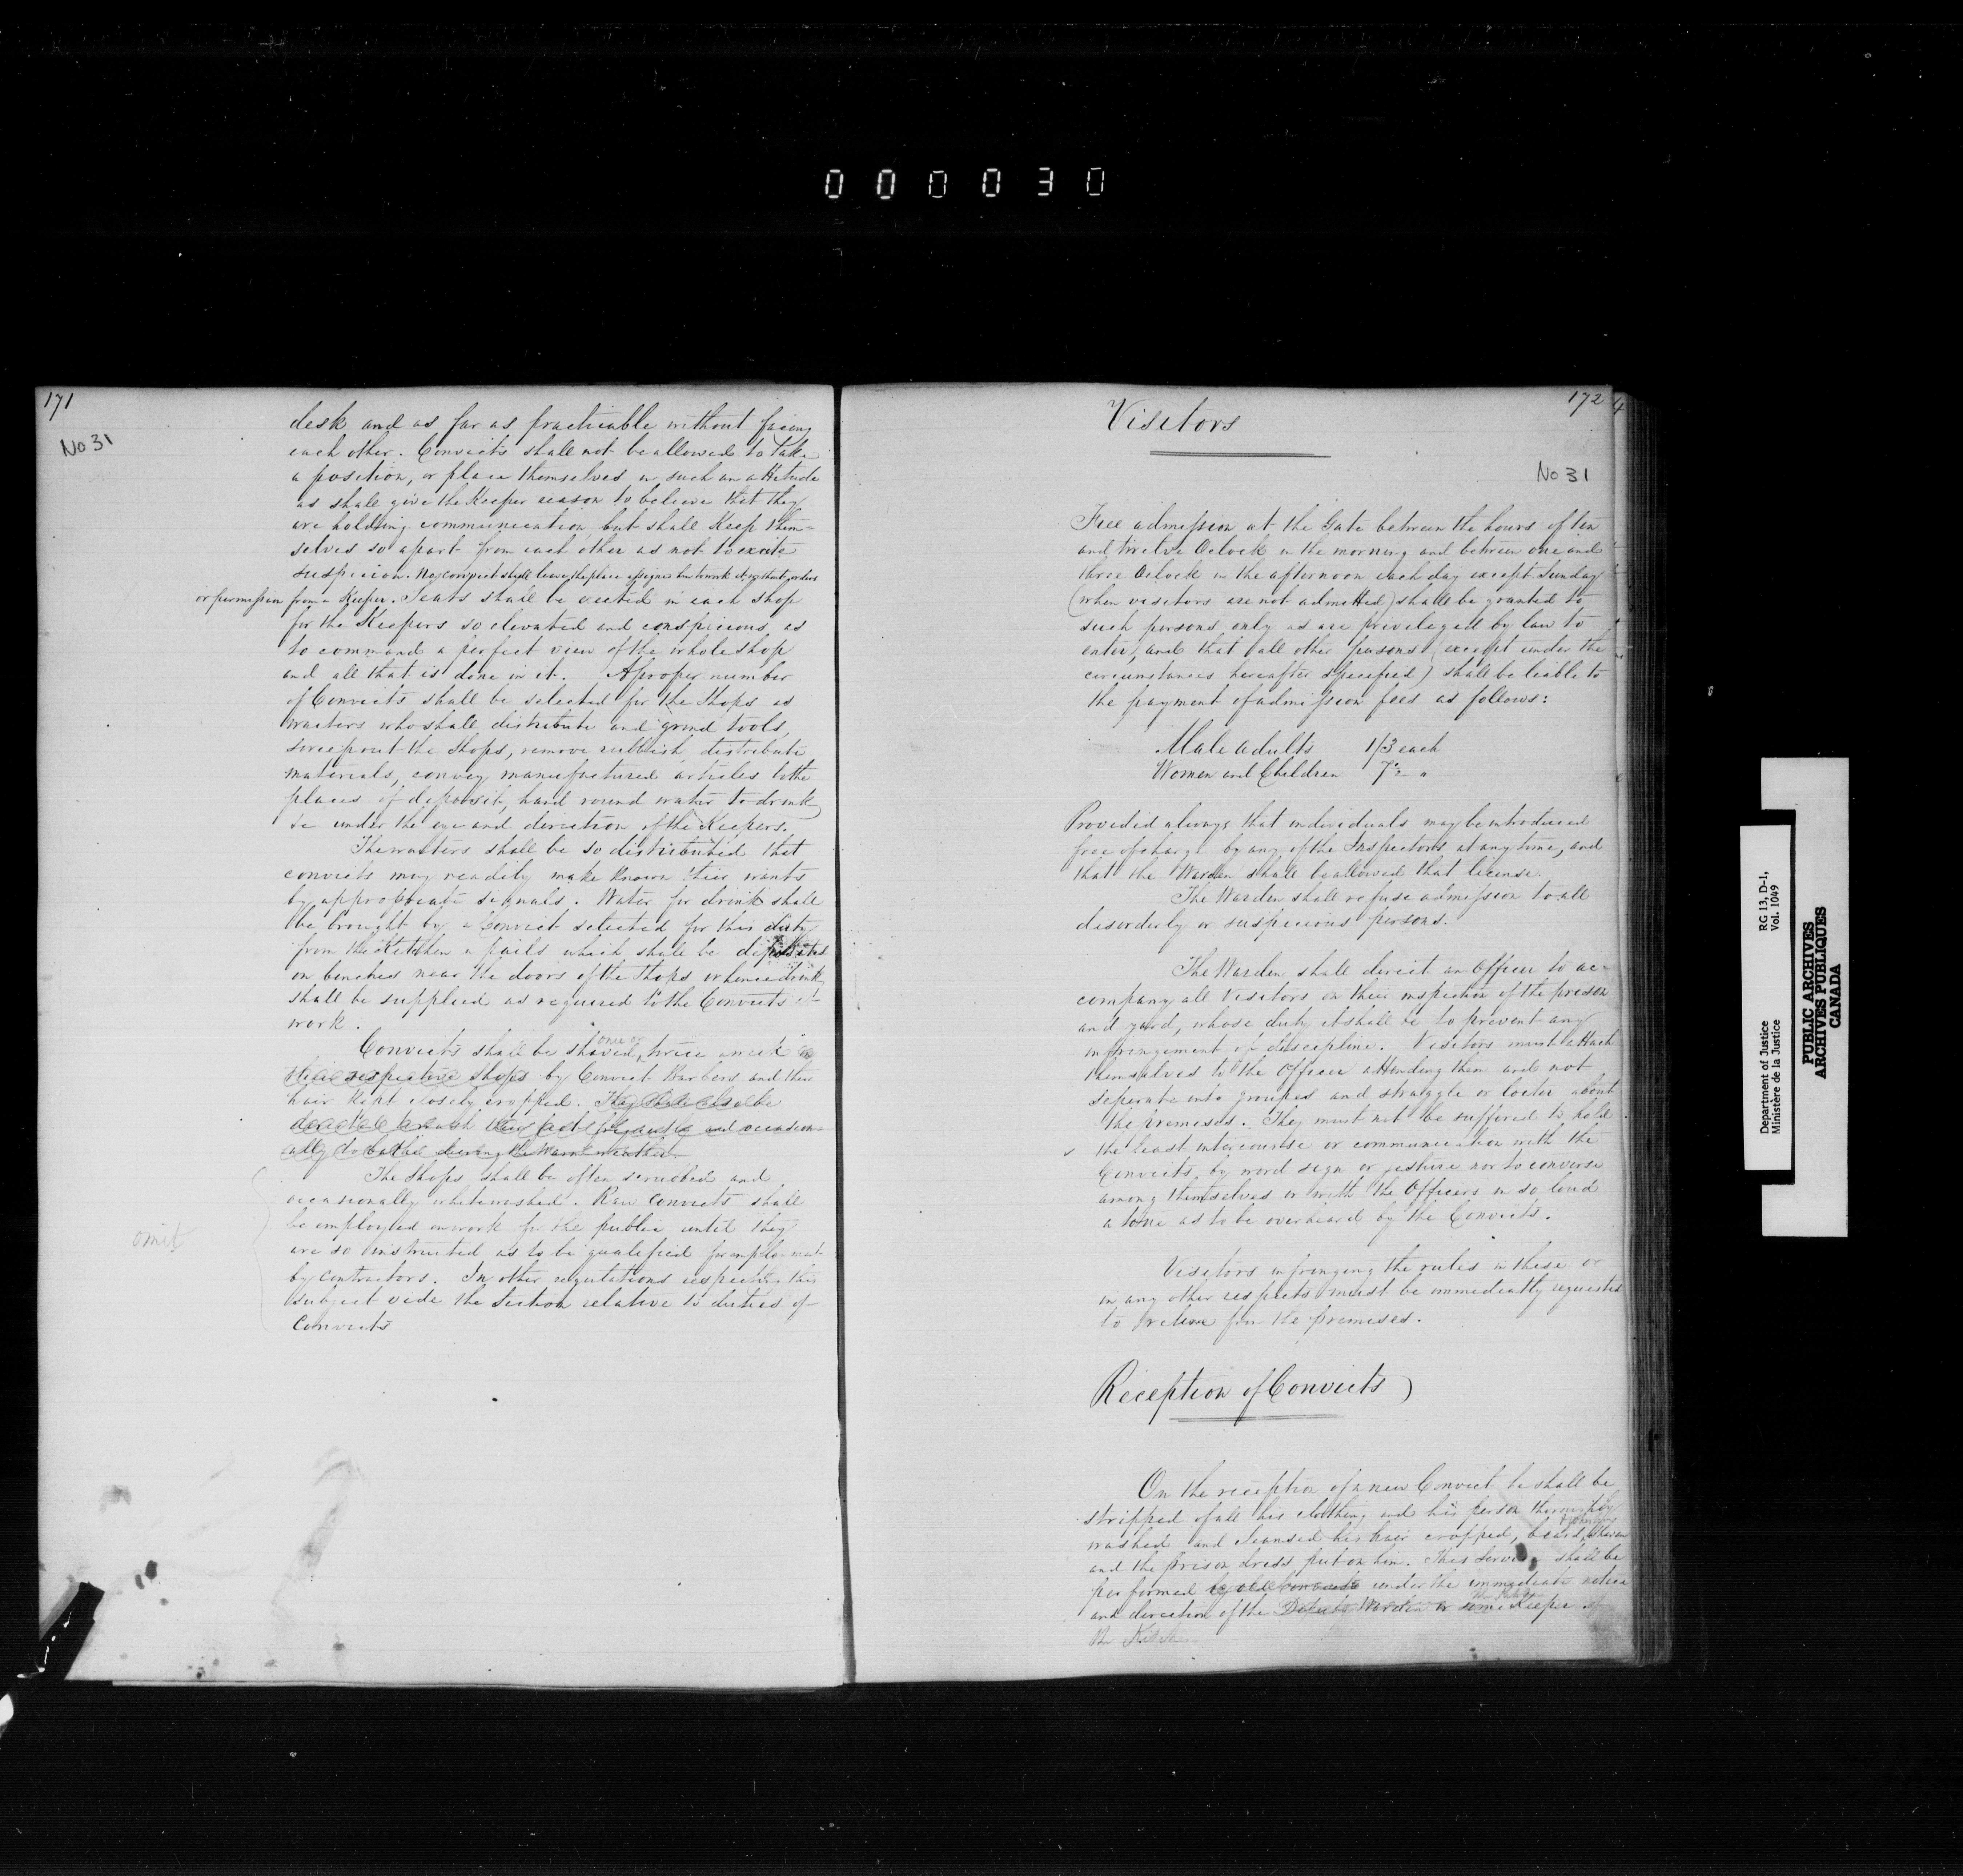 000030
171
No 31
desk and as far as practicable without facing
each other. Convicts shall not be allowed to take
a position, or place themselves in such an attitude
as shall give the Keeper reason to believe that they
are holding communication, but shall Keep them=
selves so apart from each other as not to excite
suspicion. No convict shall leave the place assigned him to work at without orders
or permission from a Keeper. Seats shall be erected in each shop
for the Keepers so elevated and conspicuous as
to command a perfect view of the whole shop
and all that is done in it. A proper number
of Convicts shall be selected for the Shops as
waiters who shall distribute and grind tools,
sweep out the Shops, remove rubbish, distribute
materials, convey manufactured articles to the
places of deposit, hand round water to drink
&c under the eye and direction of the Keepers.
The waiters shall be so distributed that
convicts may readily make known their wants
by appropriate signals. Water for drink shall
be brought by a Convict selected for this duty
from the Kitchen in pails which shall be deposited
on benches near the doors of the Shops whence drink
shall be supplied as required to the Convicts at
work.
Convicts shall be shaved, once or twice a week in
their respective Shops by Convict Barbers and their
hair kept closely cropped. They shall also be
directed to wash their feet frequently and occasion-
ally to bathe during the Warm weather.
The Shops shall be often scrubbed and
occasionally whitewashed. Raw Convicts shall
be employed on work for the public until they
are so instructed as to be qualified for employment
by contractors. In other regulations respecting this
subject vide the Section relative to duties of
Convicts
omit
172
Visitors
No 31
Free admission at the Gate between the hours of ten
and twelve Oclock in the morning and between one and
three Oclock in the afternoon each day except Sunday
(when visitors are not admitted) shall be granted to
such persons only as are privileged by law to
enter, and that all other persons (except under the
circumstances hereafter specified) shall be liable to
the payment of admission fees as follows:
Male adults 1/3 each
Women and Children 7½ "
Provided always that individuals may be introduced
free of charge by any of the Inspectors at any time, and
that the Warden shall be allowed that license.
The Warden shall refuse admission to all
disorderly or suspicious persons.
The Warden shall direct an Officer to ac=
company all Visitors on their inspection of the prison
and yard, whose duty it shall be to prevent any
infringement of discipline. Visitors must attach
themselves to the Officer attending them and not
seperate into groupes and straggle or loiter about
the premises. They must not be suffered to hold
the least intercourse or communication with the
Convicts, by word sign or gesture nor to converse
among themselves or with the Officers in so loud
a tone as to be overheard by the Convicts.
Visitors infringing the rules in these or
in any other respects must be immediatly requested
to retire from the premises.
Reception of Convicts
On the reception of a new Convict he shall be
stripped of all his clothing and his person thoroughly
washed and cleansed his hair cropped, beard shaven
and the prison dress put on him. This service shall be
performed by old convicts under the immediate notice
and direction of the Deputy Warden or some Keeper of
the
Department of Justice
Ministère de la Justice
RG 13, D-1,
Vol. 1049
PUBLIC ARCHIVES
ARCHIVES PUBLIQUES
CANADA